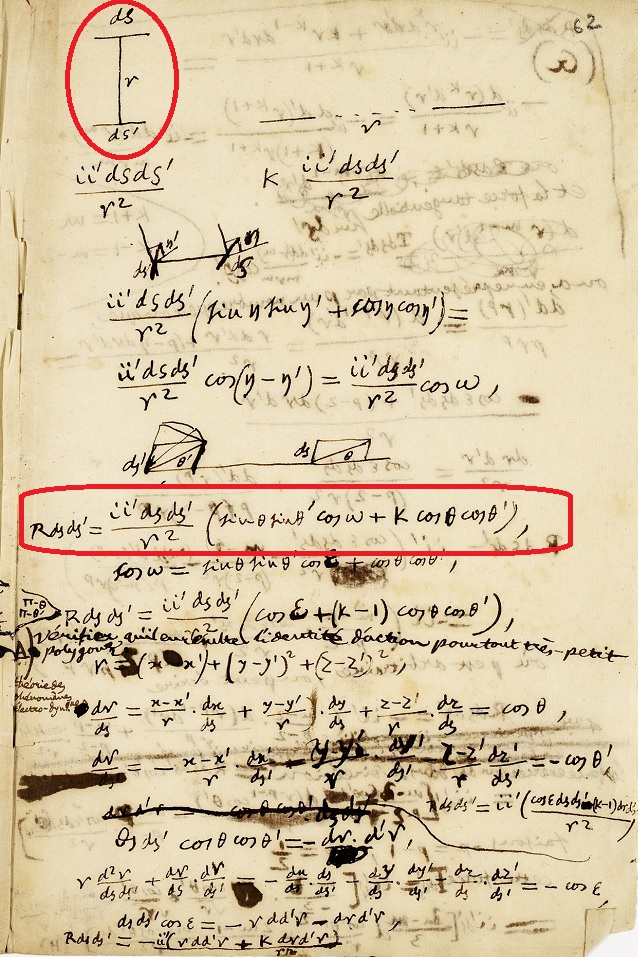 62
ds
r
ds'
r
ii'dsds'/r² K ii'dsds'/r²
η' η
ds' ds
ii'dsds'/r² (sin η sin η' + cos η cos η') =
ii'dsds'/r² cos(η − η') = ii'dsds'/r² cos ω,
ds' θ' ds
R ds ds' = ii'dsds'/r² (sin θ sin θ' cos ω + K cos θ cos θ'),
cos ω = sin θ sin θ' cos ε + cos θ cos θ',
π−θ
π−θ'
R ds ds' = ii'dsds'/r² (cos ε + (k−1) cos θ cos θ'),
Vérifier qu'il en résulte l'identité d'action pour tout très-petit
polygone
r² = (x − x')² + (y−y')² + (z−z')²,
théorie des
phénomènes
électro-dyn
dr/ds = x−x'/r . dx/ds + y−y'/r . dy/ds + z−z'/r . dz/ds = cos θ,
dr/ds' = − x−x'/r . dx'/ds' − y−y'/r . dy'/ds' − z−z'/r . dz'/ds' = −cos θ'
R ds ds' = ii' (cos ε ds ds' − (k−1) dr d'r)/r²
ds ds' cos θ cos θ' = − dr . d'r,
r d²r/dsds' + dr/ds . dr/ds' = − dx/ds . dx'/ds' − dy/ds . dy'/ds' − dz/ds . dz'/ds' = − cos ε,
ds ds' cos ε = − r dd'r − dr d'r,
R ds ds' = −ii' (r dd'r + k dr d'r)/r²